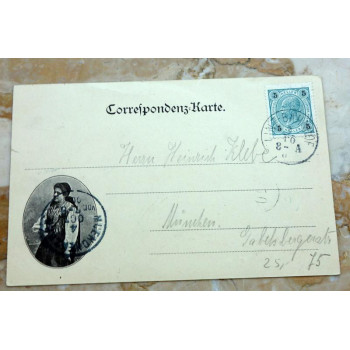 Correspondenz-Karte.
5 5
Herrn Heinrich Klebe
München.
Gabelsbergerstr
25,- 75